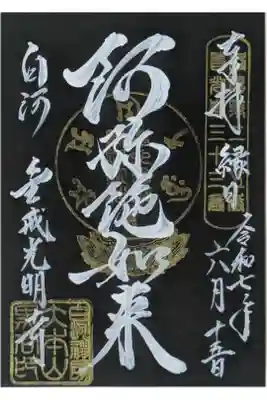 奉拝 縁日
令和七年
六月十五日
阿弥陀如来
白河
金戒光明寺
白河禅房
大本山